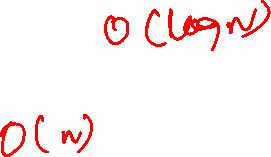 O(logN)
O(n)